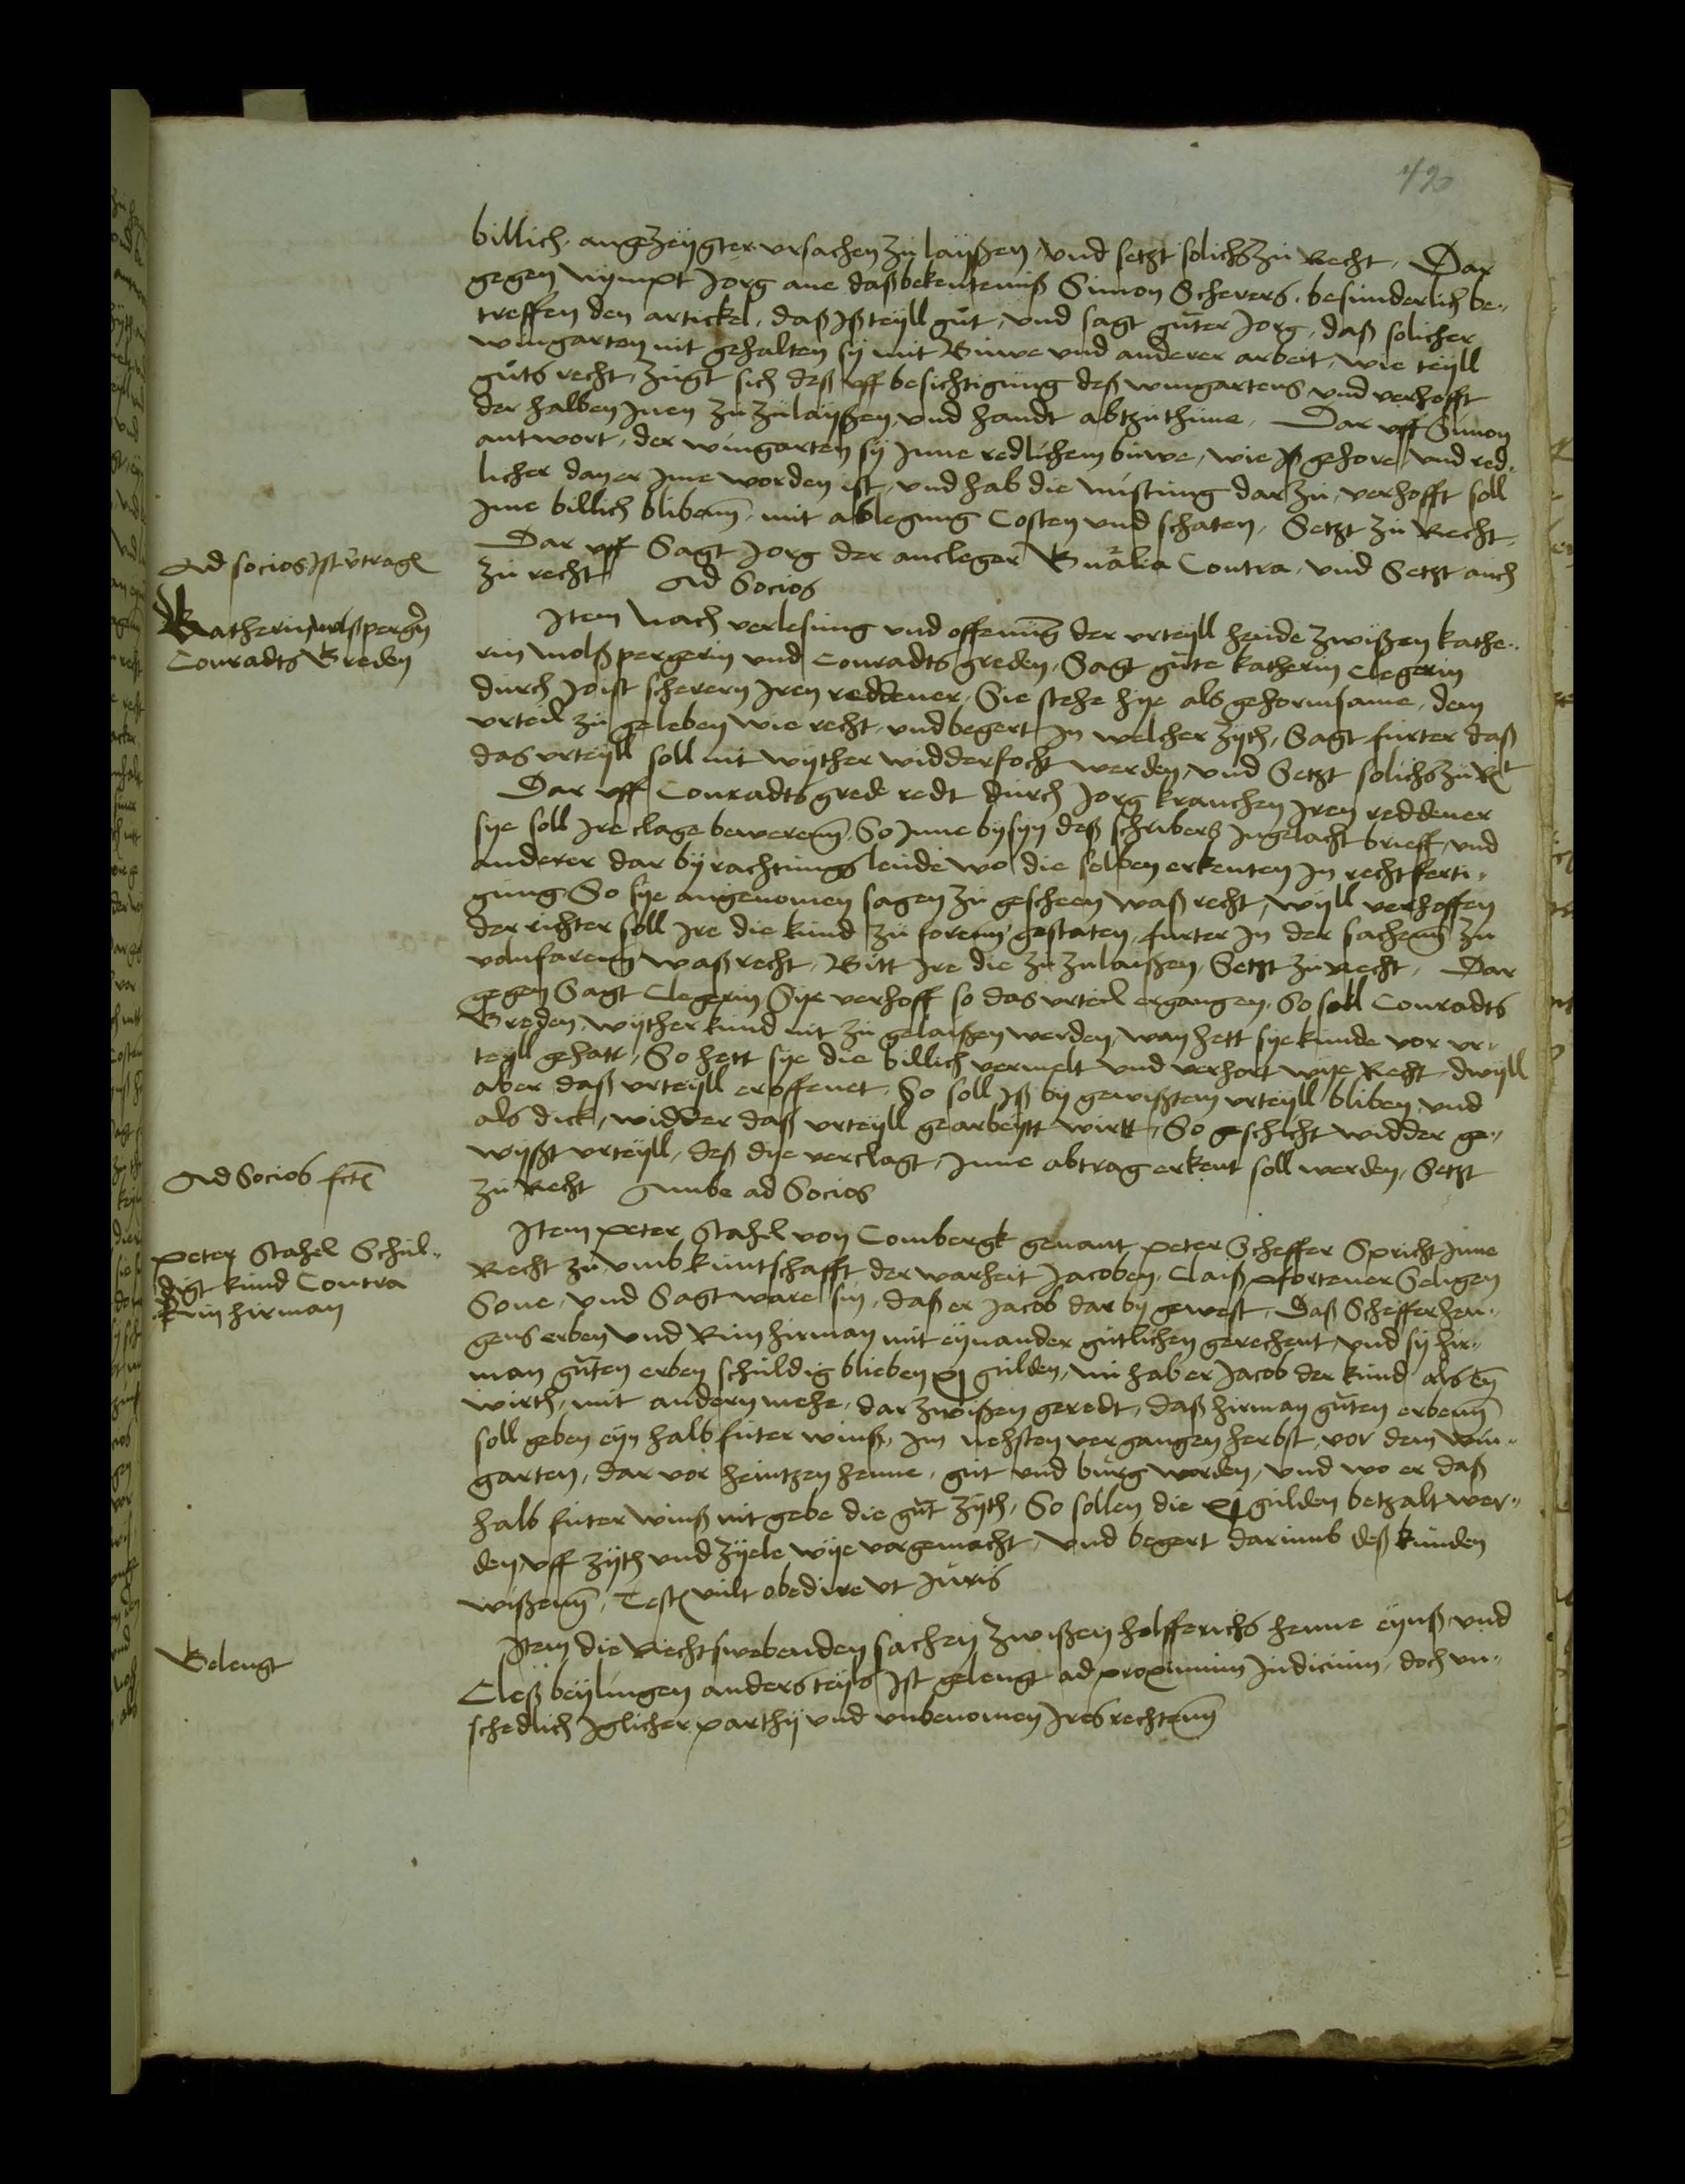 42
billich angezeygter ursachen zu laißen, und setzt solichs zu Recht, Dar
gegen nympt Jorg ane daß bekenteniß Simon Scherers, besunderlich be„
treffen den artickel, daß Iß teyll gut, und sagt guter Jorg, daß solicher
wingarten nit gehalten sy mit Buwe und anderer arbeit, wie teyll
guts recht, zugt sich deß uff besichtigung deß wingartens und verhofft
der halben Inen zu zulayßen, und handt abtzuthune, Dar uff Simon
antwort, der wingarten sy Inne redlichem buwe, wie Iß gehore, und red„
licher dan er Ime worden ist, und hab die mistung dar zu, verhofft soll
Ime billich bliben, mit ablegung Costen und schaten, Setzt zu Recht,
Dar uff Sagt Jorg der ancleger Contra, und Setzt auch
zu recht Ad Socios
Ad socios Ist
Item Nach verlesung und offenung der urteyll heude zwißen kathe„
Katherin molßpergerin
Conradts Greden
rin molßpergerin und Conradts greden, Sagt gute katherin Clegerin
durch Joist scherern Iren reddener, Sie stehe hye als gehorinsame, dem
urteil zu geleben wie recht, und begert In welcher zyth, Sagt furter daß
das urteyll soll nit wyther widderfocht werden, und Setzt solichs zu
Dar uff Conradts grede redt durch Jorg kranchen Iren reddener
sye soll Ire clage beweren, So Inne bysyn deß schribers Ingelacht brieff, und
anderer dar by rachtungs leude wo die selben erkenten In rechtferti„
gung So sye angenomen sagen zu gescheen waß recht, wyll verhoffen
der richter soll Ire die kund zu foren gestaten, furter In der sachen zu
volnfaren waß recht, Bitt Ire die zu zulaißen, Setzt zu recht, Dar
gegen Sagt Clegerin Sye verhoff so das urteil ergangen, So soll Conradts
Greden, wyther kund nit zu gelaißen werden, wan hett sye kunde vor ur„
teyll gehatt, So hett sye die billich vermelt und verhort wye Recht, dwyll
aber daß urteyll eroffenet, So soll Iß by gewißtem urteyll bliben, und
als dick, widder daß urteyll gearbeytt wirtt, So geschicht widder ge„
wyßt urteyll, deß dye verclagt, Inne abtrag erkent soll werden, Setzt
zu Recht Ambe ad Socios
Ad Socios
Item peter Stahel von Combergk genant peter Scheffer Spricht Inne
peter Stahel Schul„
digt kund Contra
Rin hirman
Recht zu umb kuntschafft der warheit Jacoben, Claiß pfortener Seligen
Sone, und Sagt ware sin, daß er Jacob dar by gewest, Daß Scheffer hen„
gens erben und Rin hirman mit eynander gutlichen gerechent, und sy hir„
man guten erben schuldig blieben xj gulden, nu hab er Jacob der kund als eyn
wirth, mit andern mehe, dar zwißen geredt, daß hirman guten erben
soll geben eyn halb futer winß, Im nehsten vergangen herbst, vor dem win„
garten, dar vor heintzen henne, gut und burg worden, und wo er daß
halb futer winß nit gebe die gut zyth, So sollen die xj gulden betzalt wer„
den, uff zyth und zyele wye vorgemacht, und begert darumb deß kunden
wißen, vult obedire ut Juris
Item die Rechtswebenden sachen zwißen helfferichs henne eynß, und
Gelengt
Cleß beylingen anders teyls Ist gelengt ad proximum Judicium, doch un„
schedlich Iglicher parthy und unbenomen Ires rechten